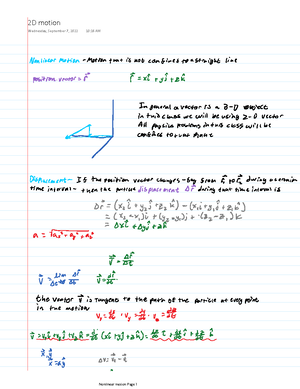 2D motion
Wednesday, September 7, 2022 10:26 AM
Nonlinear Motion - Motion that is not confined to a straight line
position vector = r⃗ r⃗ = xî + yĵ + zk̂
In general a vector is a 3-D object
in this class we will be using 2-D vector
All motion in this class will be
confined to that plane
Displacement - If the position vector changes - say from r⃗₁ to r⃗₂ during a certain
time interval - then the particle's displacement Δr⃗ during that time interval is
Δr⃗ = (x₂î + y₂ĵ + z₂k̂) - (x₁î + y₁ĵ + z₁k̂)
= (x₂ - x₁)î + (y₂ - y₁)ĵ + (z₂ - z₁)k̂
= Δxî + Δyĵ + Δzk̂
v⃗ = Δr⃗/Δt
v⃗ = lim Δt→0 Δr⃗/Δt v⃗ = dr⃗/dt
the vector v⃗ is tangent to the path of the particle at every point
in the motion vₓ = dx/dt, v_y = dy/dt, v_z = dz/dt
Nonlinear motion Page 1